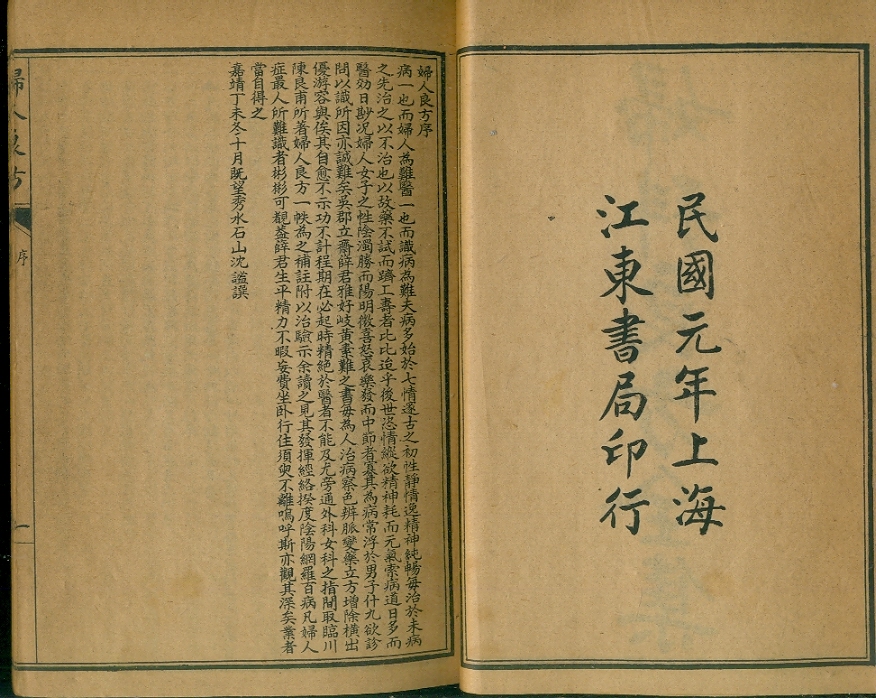 民國元年上海
江東書局印行
婦人良方序
病一也而婦人為難醫一也而識病為難夫病多始於七情邃古之初性靜情逸精神純暢每治於未病
之先治之以不治也以故藥不試而躋上壽者比比迨乎後世恣情縱欲精神耗而元氣索病道日多而
醫効日尠况婦人女子之性陰濁勝而陽明微喜怒哀樂發而中節者寡其為病常浮於男子什九欲診
問以識所因亦誠難矣吳郡立齋薛君雅好岐黃素難之書每為人治病察色辨脈變藥立方增除橫出
優游容與俟其自愈不示功不計程期在必起時精絕於醫者不能及尤旁通外科女科之指間取臨川
陳良甫所著婦人良方一帙為之補註附以治驗示余讀之見其發揮經絡揆度陰陽網羅百病凡婦人
症最人所難識者彬彬可觀蓋薛君生平精力不暇妄費坐卧行住須臾不離嗚呼斯亦觀其深矣業者
當自得之
嘉靖丁未冬十月既望秀水石山沈謐譔
婦人良方
序
一